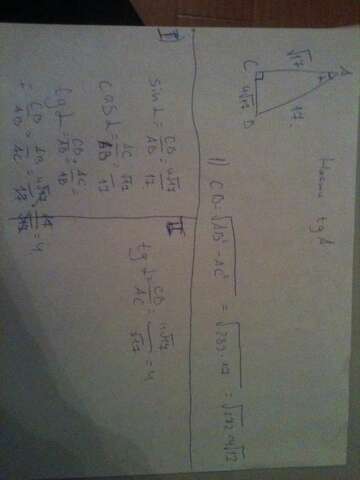 Найти tg A
A
√17
17
C
4√17
B
1) CB = √AB² - AC² = √289-17 = √272 = 4√17
I)
sin α = CB/AB = 4√17/17
cos α = AC/AB = √17/17
tg α = CB/AB : AC/AB =
= CB/AB · AB/AC = 4√17/17 · 17/√17 = 4
II
tg α = CB/AC = 4√17/√17 = 4